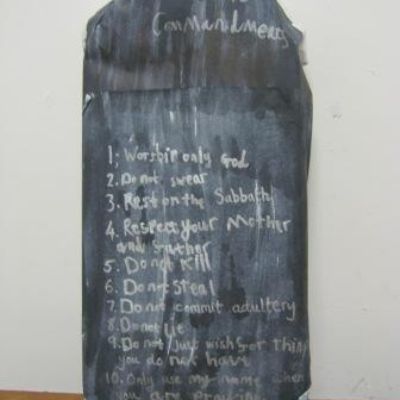 Commandments
1; Worship only God
2. Do not swear
3. Rest on the Sabbath
4. Respect your Mother
and father
5. Do not Kill
6. Do not Steal
7. Do not commit adultery
8. Do not lie
9. Do not just wish for Things
you do not have
10. Only use my name when
you are